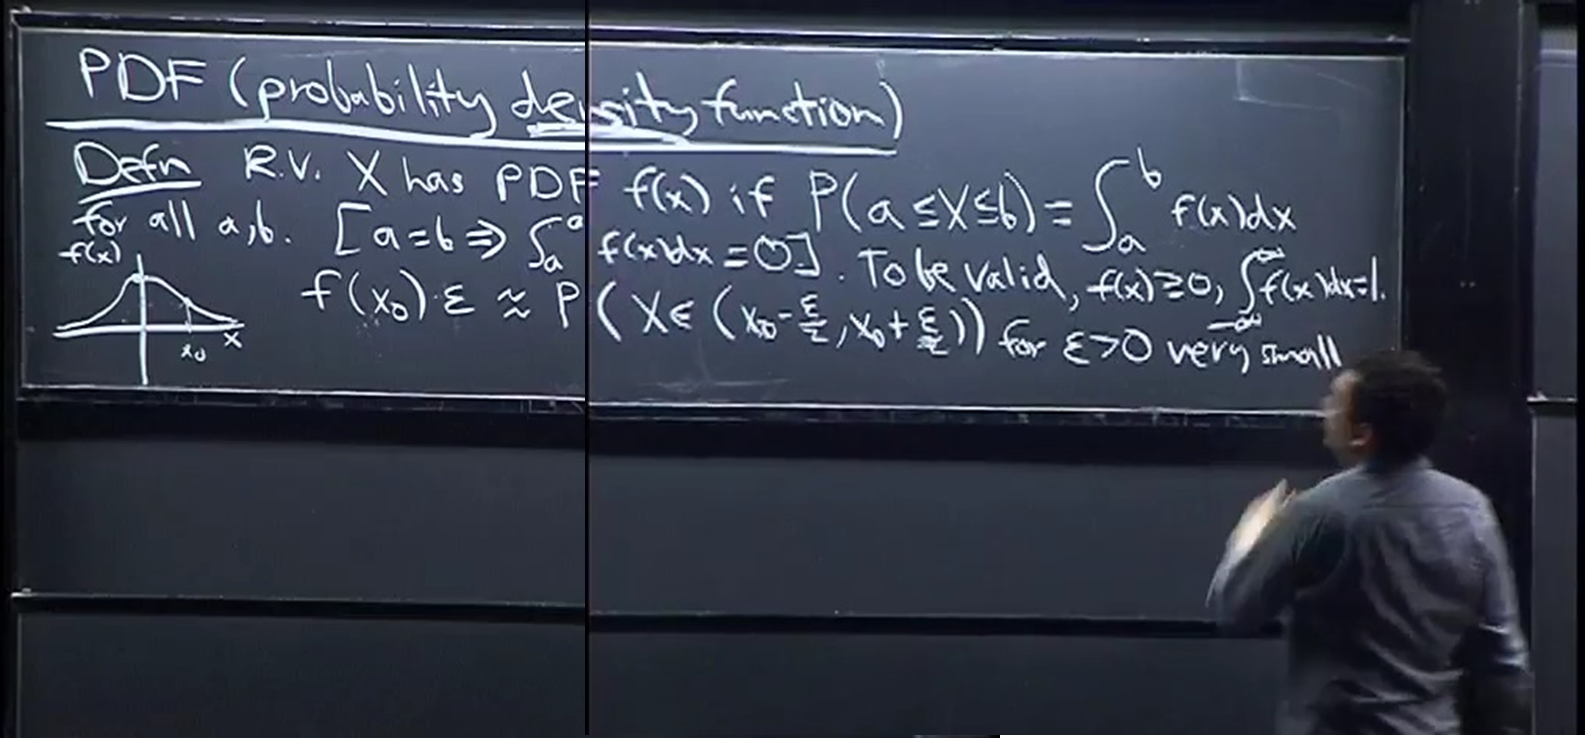 PDF (probability density function)
Defn R.V. X has PDF f(x) if P(a≤X≤b) = ∫_a^b f(x)dx
for all a,b. [a=b ⇒ ∫_a^a f(x)dx = 0]. To be valid, f(x)≥0, ∫_{-∞}^{∞} f(x)dx=1.
f(x₀)·ε ≈ P(X∈(x₀-ε/2, x₀+ε/2)) for ε>0 very small
f(x)
x₀ x